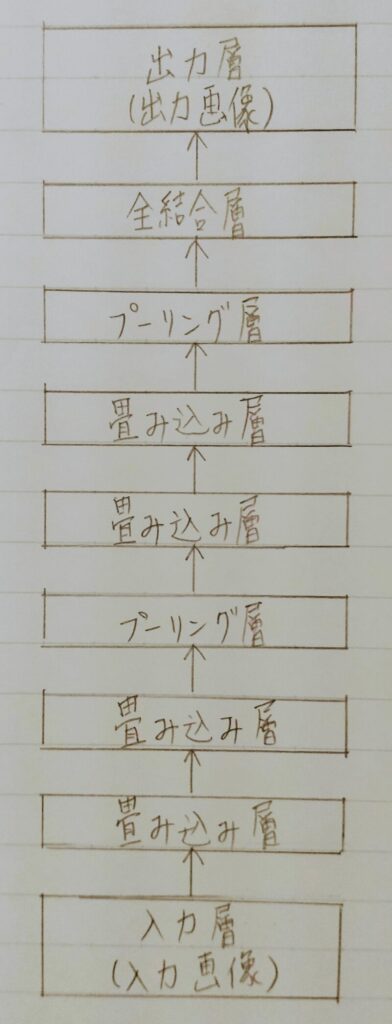 出力層
(出力画像)
全結合層
プーリング層
畳み込み層
畳み込み層
プーリング層
畳み込み層
畳み込み層
入力層
(入力画像)